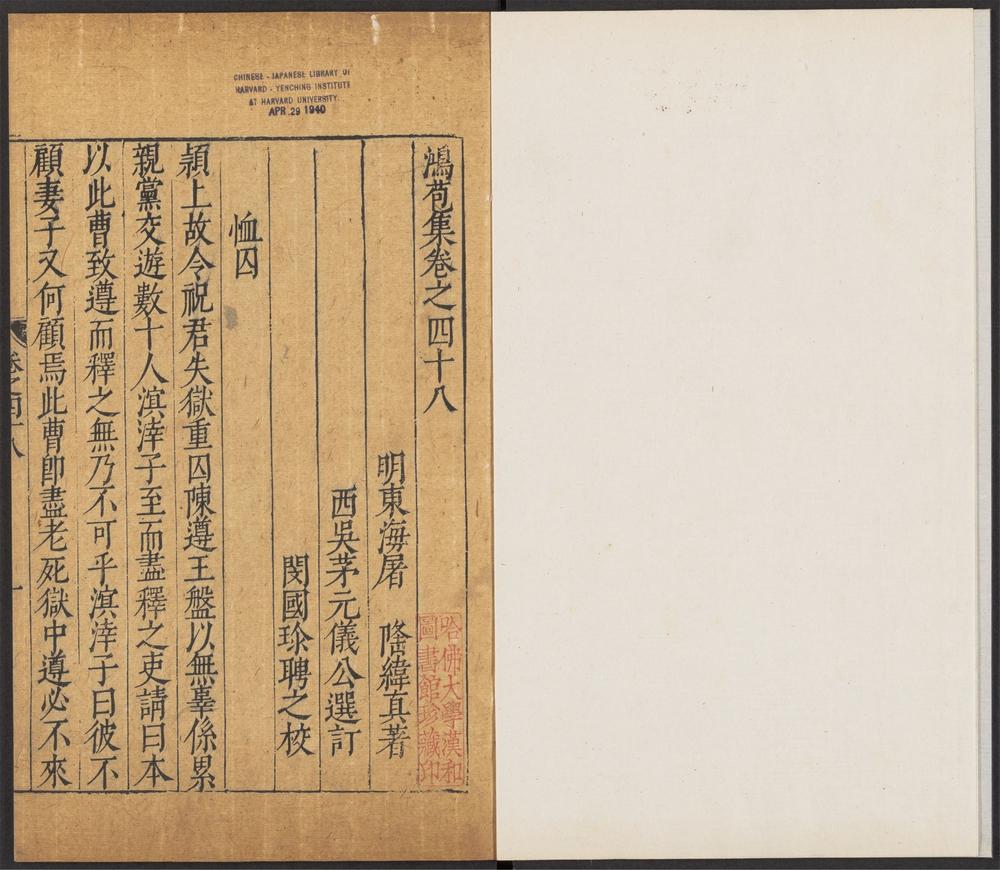 CHINESE - JAPANESE LIBRARY OF
HARVARD - YENCHING INSTITUTE
AT HARVARD UNIVERSITY.
APR 29 1940
鴻苞集卷之四十八
明東海屠 隆緯真著
西吳茅元儀公選訂
閔國珍聘之校
哈佛大學漢和
圖書館珍藏印
恤囚
頴上故令祝君失獄重囚陳遵王盤以無辜係累
親黨交遊數十人溟涬子至而盡釋之吏請曰本
以此曹致遵而釋之無乃不可乎溟涬子曰彼不
顧妻子又何顧焉此曹即盡老死獄中遵必不來
卷之四十八
一